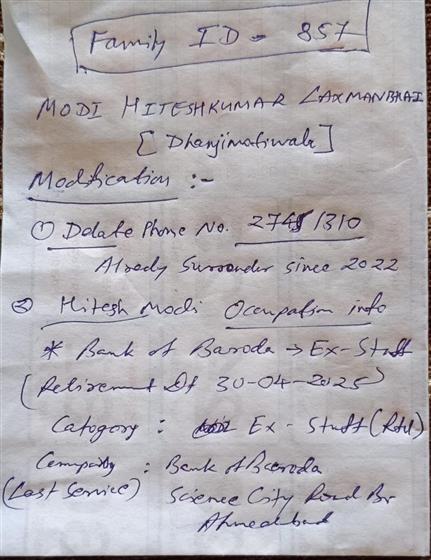 Family ID - 857
MODI HITESHKUMAR LAXMANBHAI
[Dhanjimatiwala]
Modification :-
① Delate Phone No. 2745 1310
Already Surrander since 2022
② Hitesh Modi Occupation info
* Bank of Baroda → Ex-Staff
(Retirement Dt 30-04-2025)
Catogory : Ex - Staff (Rtd)
Company : Bank of Baroda
(Last Service) Science City Road Br
Ahmedabad